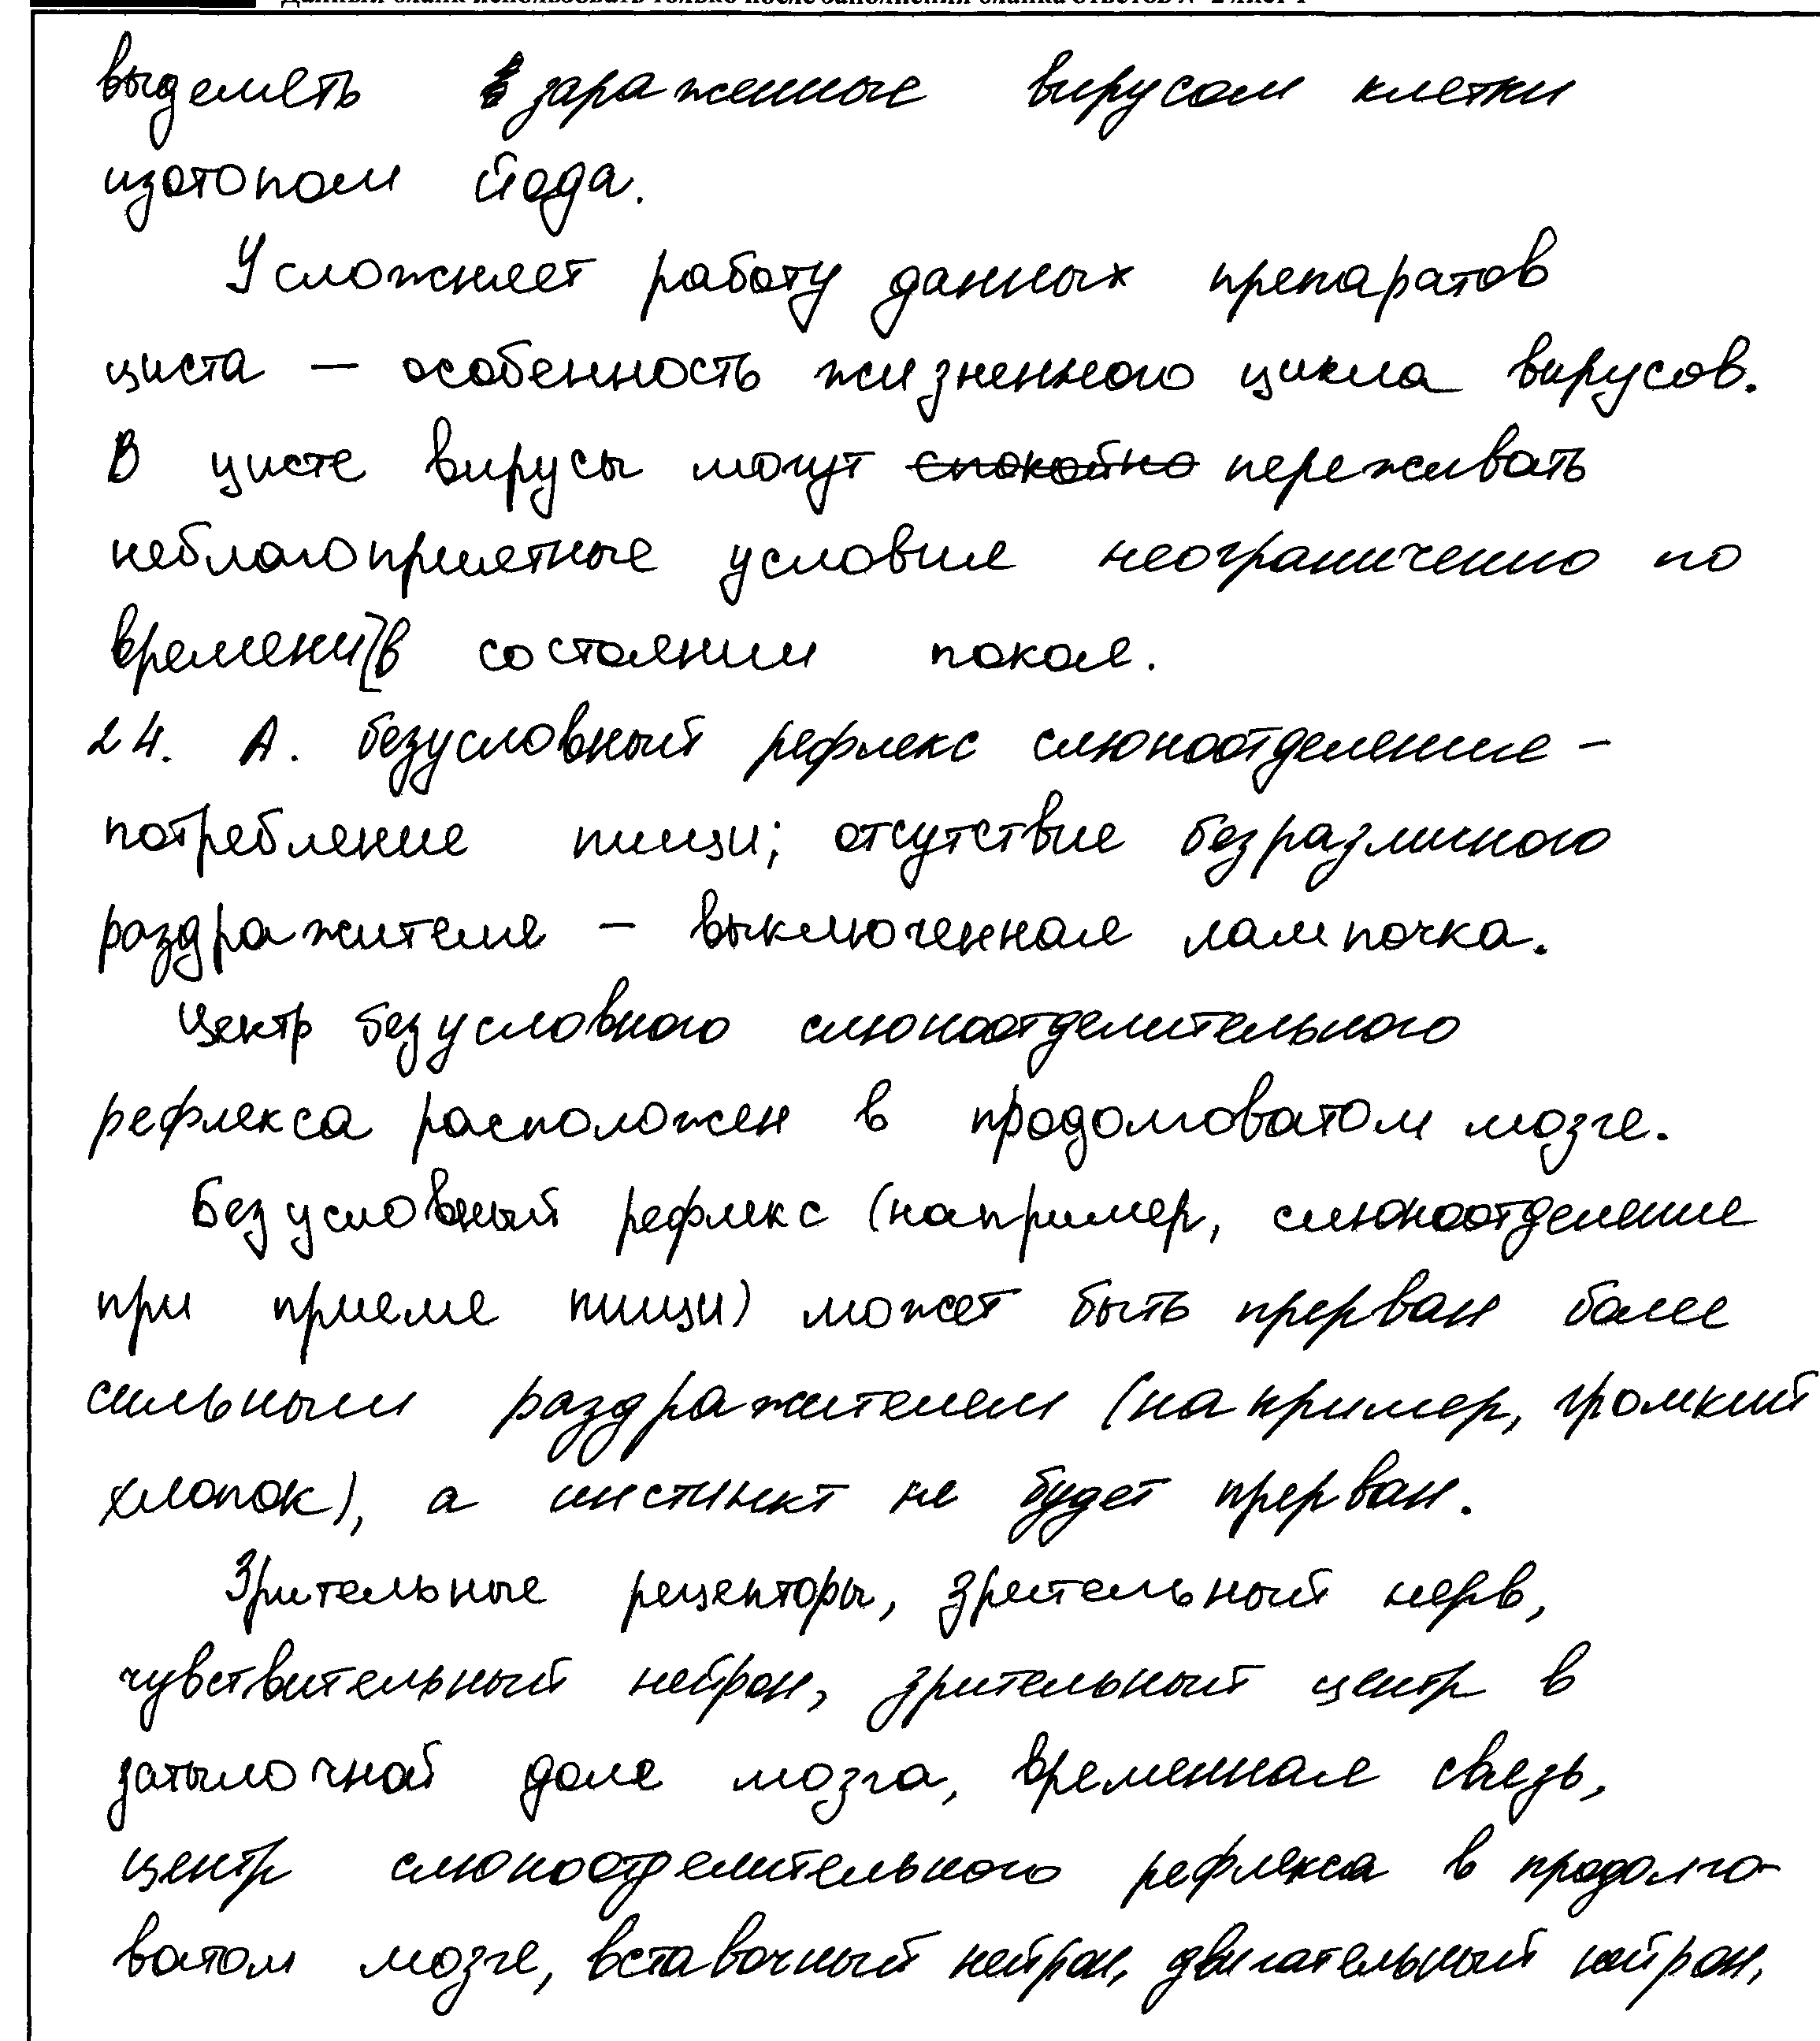 Данный бланк использовать только после заполнения бланка ответов № 2 лист 1
выделять зараженные вирусом клетки
изотопом йода.
Усложняет работу данных препаратов
циста — особенность жизненного цикла вирусов.
В цисте вирусы могут спокойно переживать
неблагоприятные условия неограниченно по
времени в состоянии покоя.
24. А. безусловный рефлекс слюноотделение -
потребление пищи; отсутствие безразличного
раздражителя – выключенная лампочка.
Центр безусловного слюноотделительного
рефлекса расположен в продолговатом мозге.
Безусловный рефлекс (например, слюноотделение
при приеме пищи) может быть прерван более
сильным раздражителем (например, громкий
хлопок), а инстинкт не будет прерван.
Зрительные рецепторы, зрительный нерв,
чувствительный нейрон, зрительный центр в
затылочной доле мозга, временная связь,
центр слюноотделительного рефлекса в продолго-
ватом мозге, вставочный нейрон, двигательный нейрон,